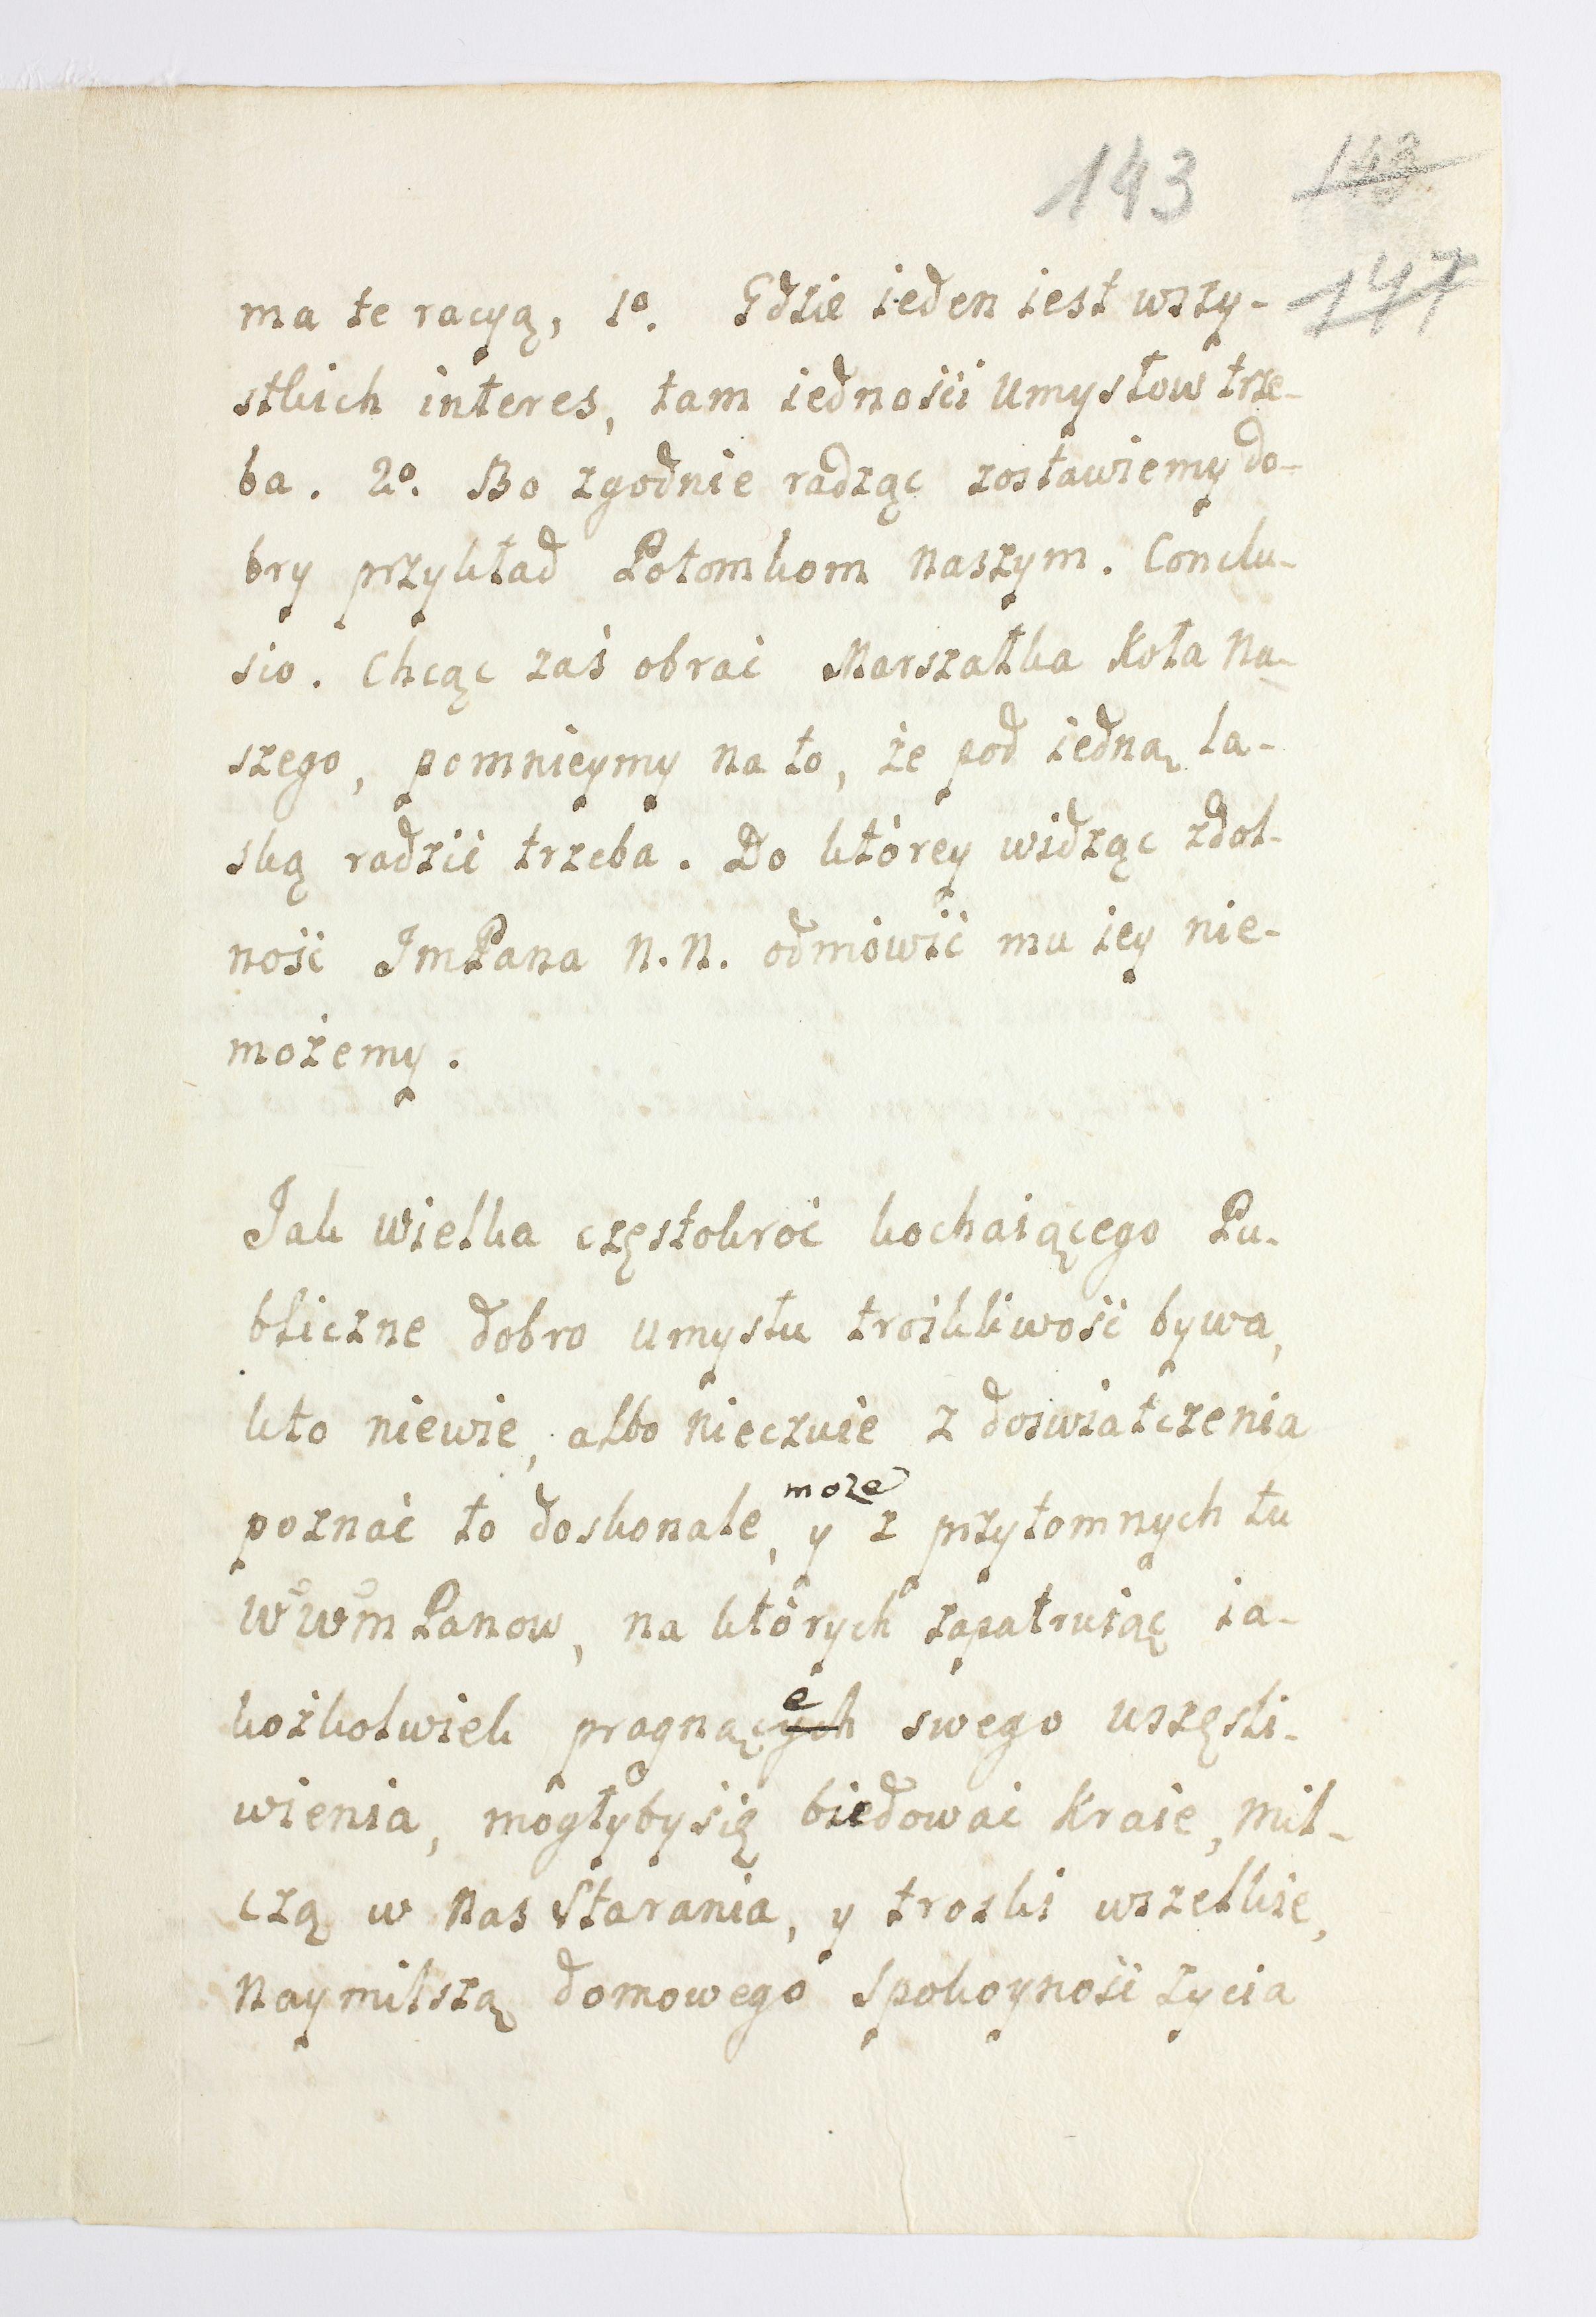 143 143
147
ma te racyą, 1º. Gdzie ieden iest wszy-
stkich interes, tam iednosci umysłow trze-
ba. 2º. Bo zgodnie radząc zostawiemy do-
bry przykład Potomkom naszym. Conclu-
sio. Chcąc zaś obrać Marszałka Koła Na-
szego, pomnieymy na to, że pod iedną la-
ską radzić trzeba. Do którey widząc zdol-
ność JmPana N.N. odmówić mu iey nie-
możemy.
Jak wielka częstokroć kochaiącego Pu-
bliczne dobro umysłu troskliwość bywa,
kto niewie, albo nieczuie z doswiatczenia
może
poznać to doskonale, y z przytomnych tu
WWm Panow, na których zapatruiąc ia-
e
kożkolwiek pragnących swego uszczęśli-
wienia, mogłyby się biedować Kraie, mil-
czą w nas starania, y troski wszelkie,
naymilszą domowego spokoyności życia